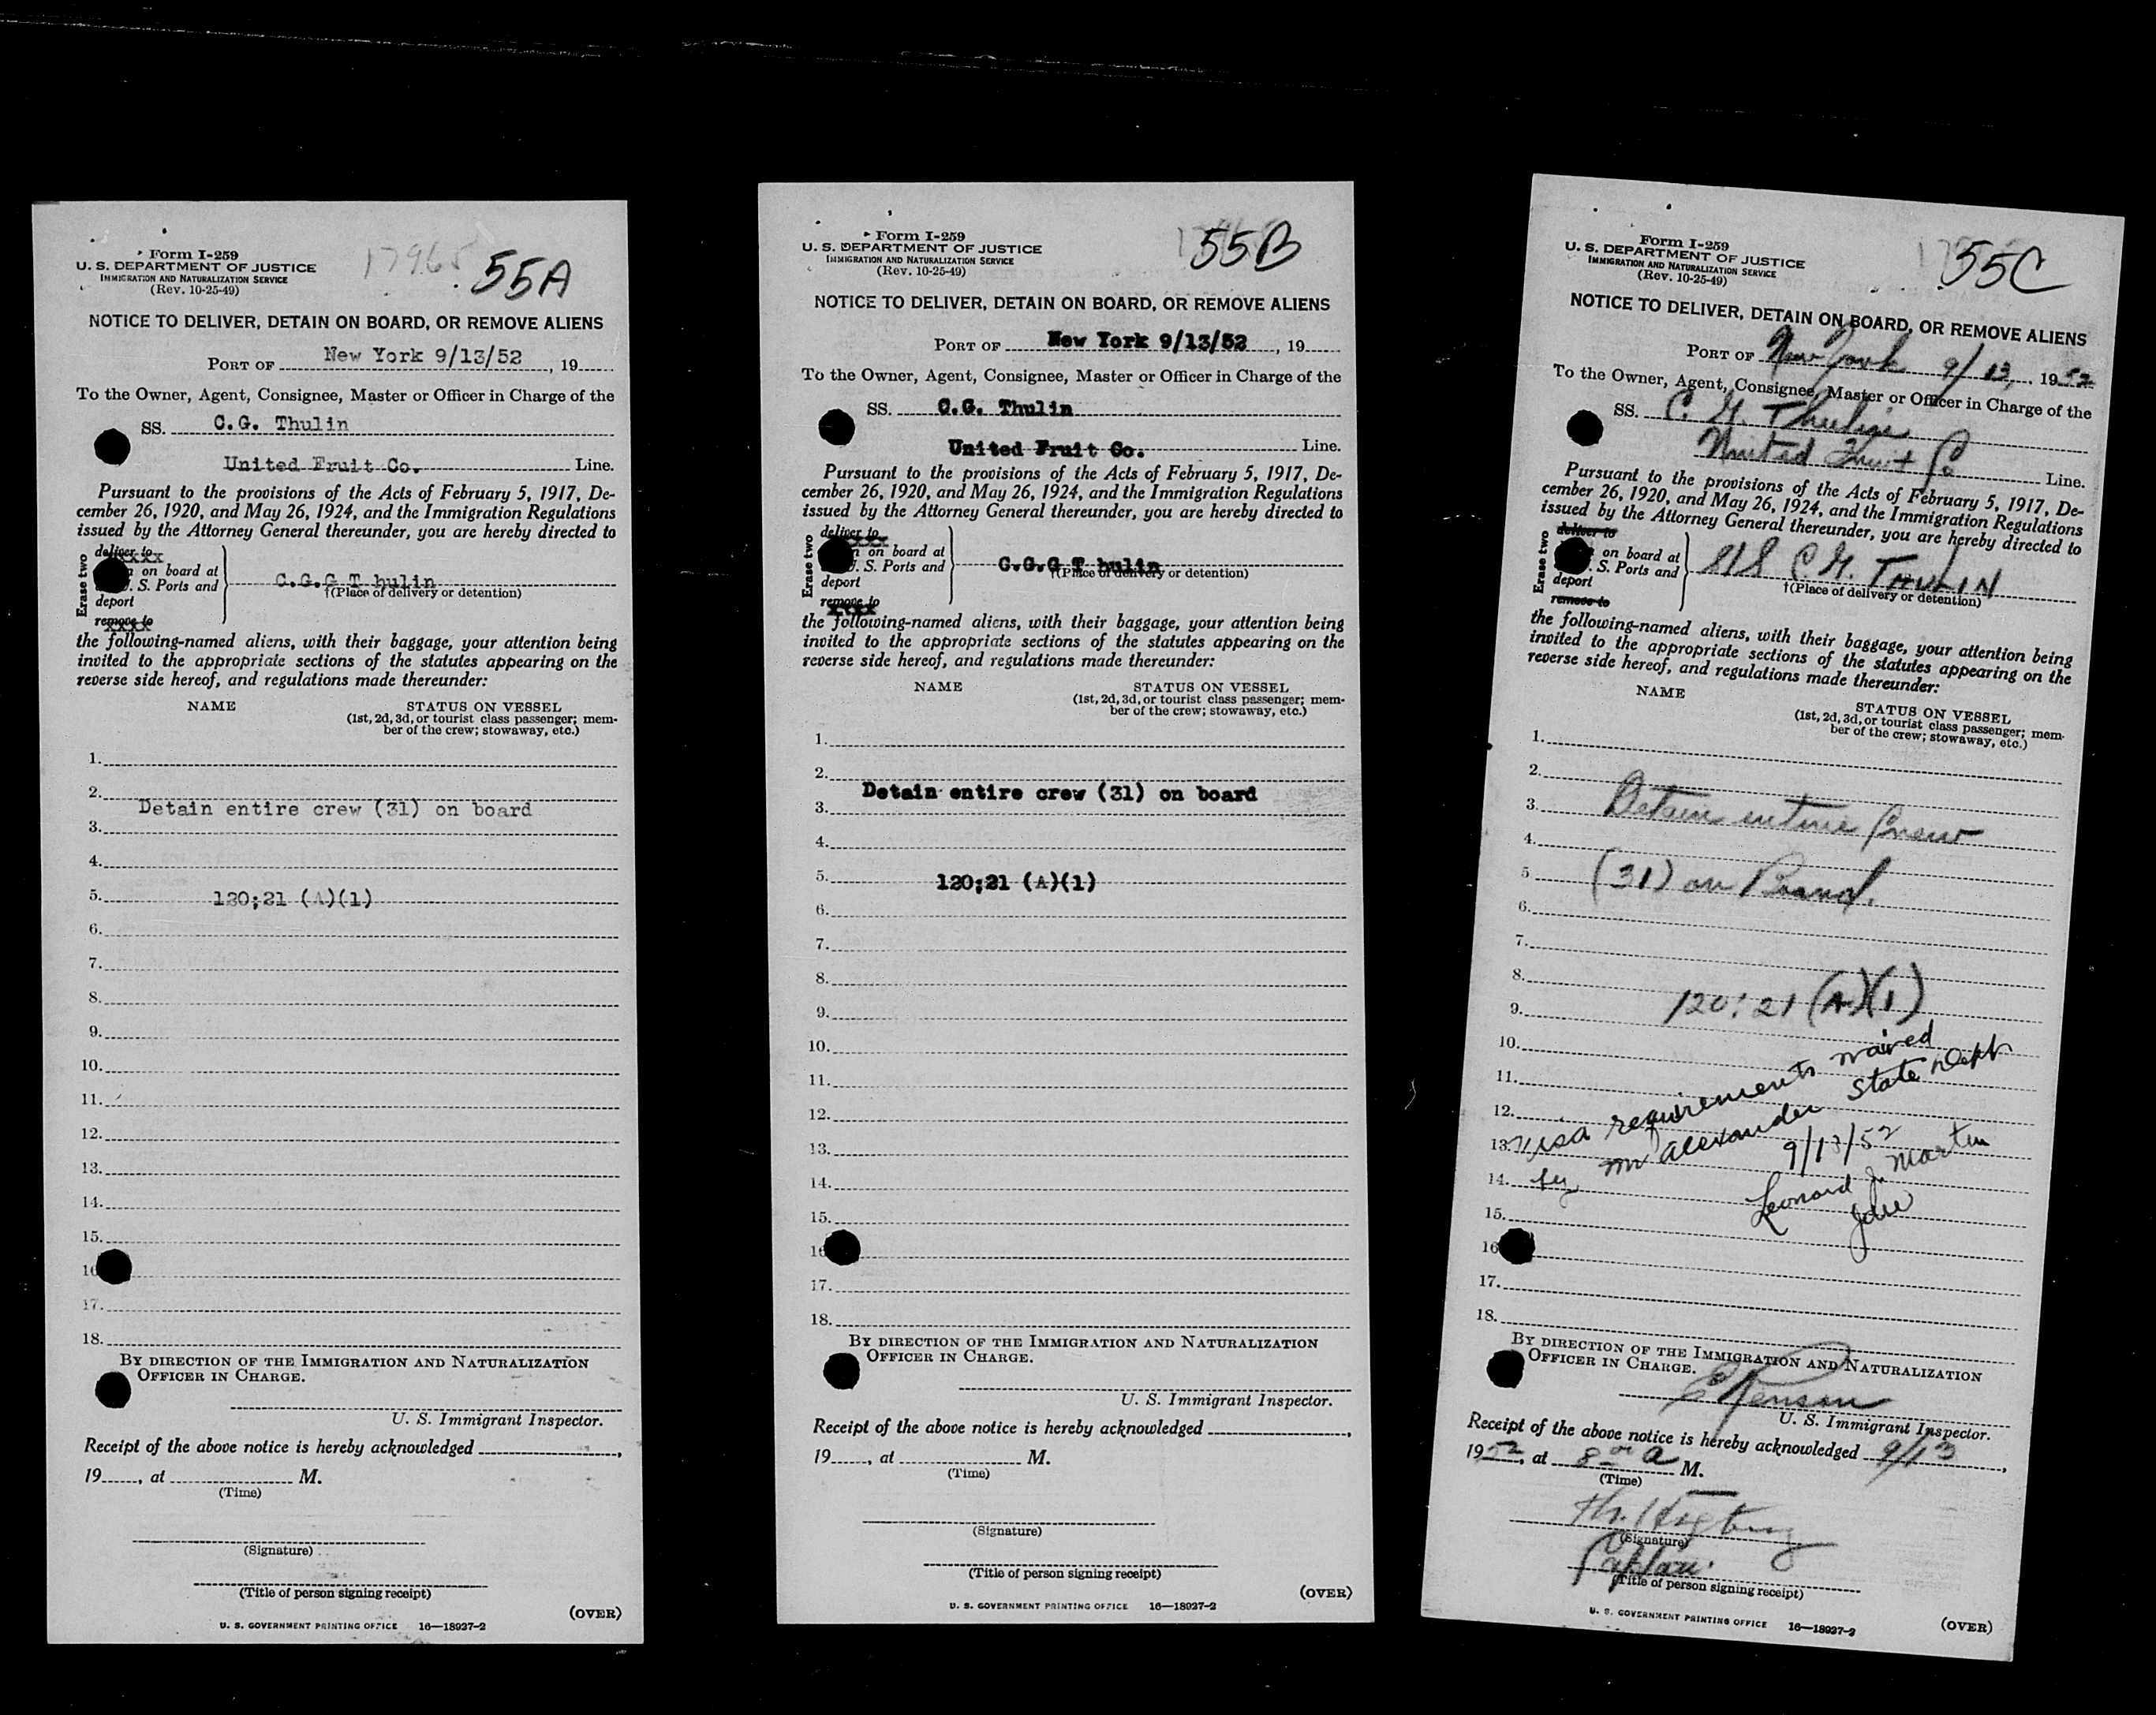 Form I-259
U. S. DEPARTMENT OF JUSTICE
IMMIGRATION AND NATURALIZATION SERVICE
(Rev. 10-25-49)
17965
55A
NOTICE TO DELIVER, DETAIN ON BOARD, OR REMOVE ALIENS
PORT OF New York 9/13/52, 19
To the Owner, Agent, Consignee, Master or Officer in Charge of the
SS. C.G. Thulin
United Fruit Co. Line.
Pursuant to the provisions of the Acts of February 5, 1917, De-
cember 26, 1920, and May 26, 1924, and the Immigration Regulations
issued by the Attorney General thereunder, you are hereby directed to
Erase two
deliver to
on board at
S. Ports and
deport
remove to
C.G.G T hulin
†(Place of delivery or detention)
the following-named aliens, with their baggage, your attention being
invited to the appropriate sections of the statutes appearing on the
reverse side hereof, and regulations made thereunder:
NAME STATUS ON VESSEL
(1st, 2d, 3d, or tourist class passenger; mem-
ber of the crew; stowaway, etc.)
1.
2.
Detain entire crew (31) on board
3.
4.
5. 120;21 (A)(1)
6.
7.
8.
9.
10.
11.
12.
13.
14.
15.
16
17.
18.
BY DIRECTION OF THE IMMIGRATION AND NATURALIZATION
OFFICER IN CHARGE.
U. S. Immigrant Inspector.
Receipt of the above notice is hereby acknowledged ,
19 , at M.
(Time)
(Signature)
(Title of person signing receipt)
(OVER)
U. S. GOVERNMENT PRINTING OFFICE 16—18927-2
Form I-259
U. S. DEPARTMENT OF JUSTICE
IMMIGRATION AND NATURALIZATION SERVICE
(Rev. 10-25-49)
55B
NOTICE TO DELIVER, DETAIN ON BOARD, OR REMOVE ALIENS
PORT OF New York 9/13/52, 19
To the Owner, Agent, Consignee, Master or Officer in Charge of the
SS. C.G. Thulin
United Fruit Co. Line.
Pursuant to the provisions of the Acts of February 5, 1917, De-
cember 26, 1920, and May 26, 1924, and the Immigration Regulations
issued by the Attorney General thereunder, you are hereby directed to
Erase two
deliver to
on board at
U. S. Ports and
deport
remove to
C.G.G T hulin
†(Place of delivery or detention)
the following-named aliens, with their baggage, your attention being
invited to the appropriate sections of the statutes appearing on the
reverse side hereof, and regulations made thereunder:
NAME STATUS ON VESSEL
(1st, 2d, 3d, or tourist class passenger; mem-
ber of the crew; stowaway, etc.)
1.
2.
Detain entire crew (31) on board
3.
4.
5. 120;21 (A)(1)
6.
7.
8.
9.
10.
11.
12.
13.
14.
15.
16
17.
18.
BY DIRECTION OF THE IMMIGRATION AND NATURALIZATION
OFFICER IN CHARGE.
U. S. Immigrant Inspector.
Receipt of the above notice is hereby acknowledged ,
19 , at M.
(Time)
(Signature)
(Title of person signing receipt)
(OVER)
U. S. GOVERNMENT PRINTING OFFICE 16—18927-2
Form I-259
U. S. DEPARTMENT OF JUSTICE
IMMIGRATION AND NATURALIZATION SERVICE
(Rev. 10-25-49)
55C
NOTICE TO DELIVER, DETAIN ON BOARD, OR REMOVE ALIENS
PORT OF New York 9/13, 1952
To the Owner, Agent, Consignee, Master or Officer in Charge of the
SS. C. G. Thulin
United Fruit Co Line.
Pursuant to the provisions of the Acts of February 5, 1917, De-
cember 26, 1920, and May 26, 1924, and the Immigration Regulations
issued by the Attorney General thereunder, you are hereby directed to
Erase two
deliver to
on board at
S. Ports and
deport
remove to
SS C. G. THULIN
†(Place of delivery or detention)
the following-named aliens, with their baggage, your attention being
invited to the appropriate sections of the statutes appearing on the
reverse side hereof, and regulations made thereunder:
NAME STATUS ON VESSEL
(1st, 2d, 3d, or tourist class passenger; mem-
ber of the crew; stowaway, etc.)
1.
2.
3. Detain entire Crew
4.
5. (31) on Board.
6.
7.
8.
120:21 (A)(1)
9.
10.
11.
12.
13. Visa requirements waived
14. by Mr Alexander State Dept
9/13/52
Leonard J. Martin
15.
16
17.
18.
BY DIRECTION OF THE IMMIGRATION AND NATURALIZATION
OFFICER IN CHARGE.
U. S. Immigrant Inspector.
Receipt of the above notice is hereby acknowledged 9/13,
1952, at 8 00 a M.
(Time)
(Signature)
Captain
(Title of person signing receipt)
(OVER)
U. S. GOVERNMENT PRINTING OFFICE 16—18927-2